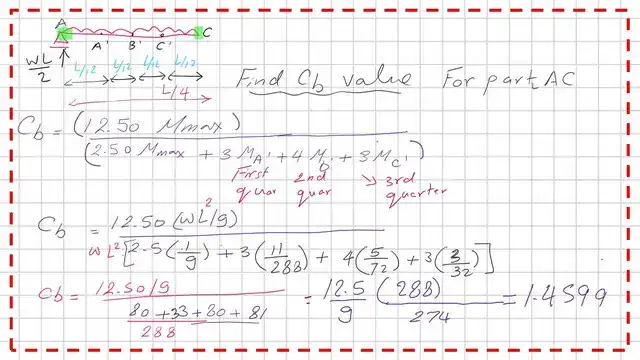 A C
A' B' C'
wL/2
L/12 L/12 L/12 L/12
L/4
Find Cb value For part AC
Cb = (12.50 Mmax) / (2.50 Mmax + 3 MA' + 4 Mb' + 3 MC')
First quar 2nd quar → 3rd quarter
Cb = 12.50 (wL²/9) / wL²[2.5(1/9) + 3(11/288) + 4(5/72) + 3(3/32)]
Cb = 12.50/9 / (80+33+80+81 / 288) = 12.5/9 (288)/274 = 1.4599